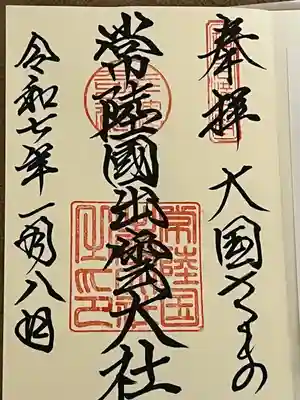 奉拝
大国さまの
常陸國出雲大社
令和七年一月八日
常陸国
之印